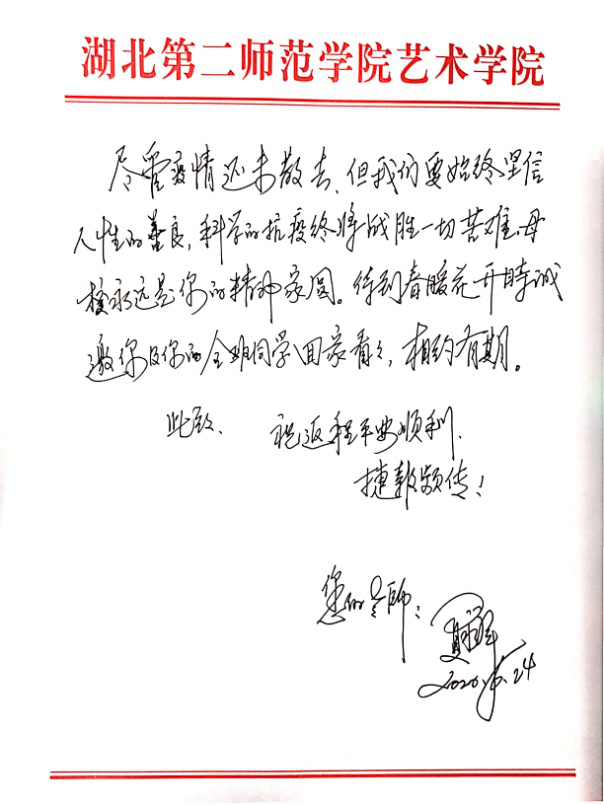 湖北第二师范学院艺术学院
尽管疫情还未散去、但我们要始终坚信
人性的善良,科学的抗疫终将战胜一切苦难。母
校永远是你的精神家园。待到春暖花开时诚
邀你及你的全班同学回家看看,相约有期。
此致、 祝返程平安顺利、
捷报频传!
您的老师:
2020.5.24